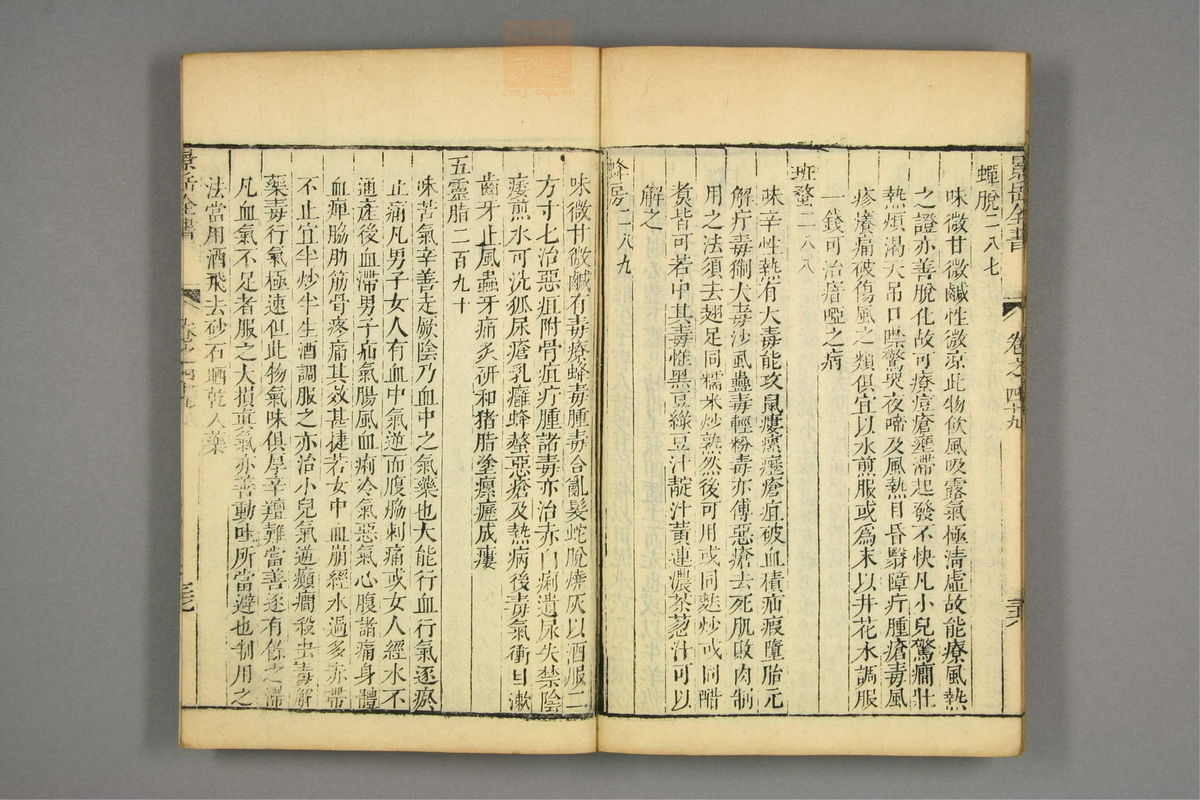 景岳全書
卷之四十九
三六
蟬脫二八七
味微甘微鹹性微凉此物飲風吸露氣極清虛故能療風熱
之證亦善脫化故可療痘瘡壅滯起發不快凡小兒驚癎壯
熱煩渴天吊口噤驚哭夜啼及風熱目昏翳障疔腫瘡毒風
疹癢痛破傷風之類俱宜以水煎服或爲末以井花水調服
一錢可治瘖啞之病
班蝥二八八
味辛性熱有大毒能攻鼠瘻瘰癧瘡疽破血積疝瘕墮胎元
解疔毒猘犬毒沙虱蠱毒輕粉毒亦傅惡瘡去死肌敗肉制
用之法須去翅足同糯米炒熟然後可用或同麩炒或同醋
煑皆可若中其毒惟黑豆綠豆汁靛汁黃連濃茶葱汁可以
解之
蜂房二八九
味微甘微鹹有毒療蜂毒腫毒合亂髮蛇脫燒灰以酒服二
方寸匕治惡疽附骨疽疔腫諸毒亦治赤白痢遺尿失禁陰
痿煎水可洗狐尿瘡乳癰蜂螫惡瘡及熱病後毒氣衝目漱
齒牙止風蟲牙痛炙研和猪脂塗瘰癧成瘻
五靈脂二百九十
味苦氣辛善走厥陰乃血中之氣藥也大能行血行氣逐瘀
止痛凡男子女人有血中氣逆而腹脇刺痛或女人經水不
通產後血滯男子疝氣腸風血痢冷氣惡氣心腹諸痛身體
血痺脇肋筋骨疼痛其效甚捷若女中血崩經水過多赤帶
不止宜半炒半生酒調服之亦治小兒氣逆癲癎殺虫毒解
藥毒行氣極速但此物氣味俱厚辛羶難當善逐有餘之滯
凡血氣不足者服之大損眞氣亦善動吐所當避也制用之
法當用酒飛去砂石晒乾入藥
景岳全書
卷之四十九
三七